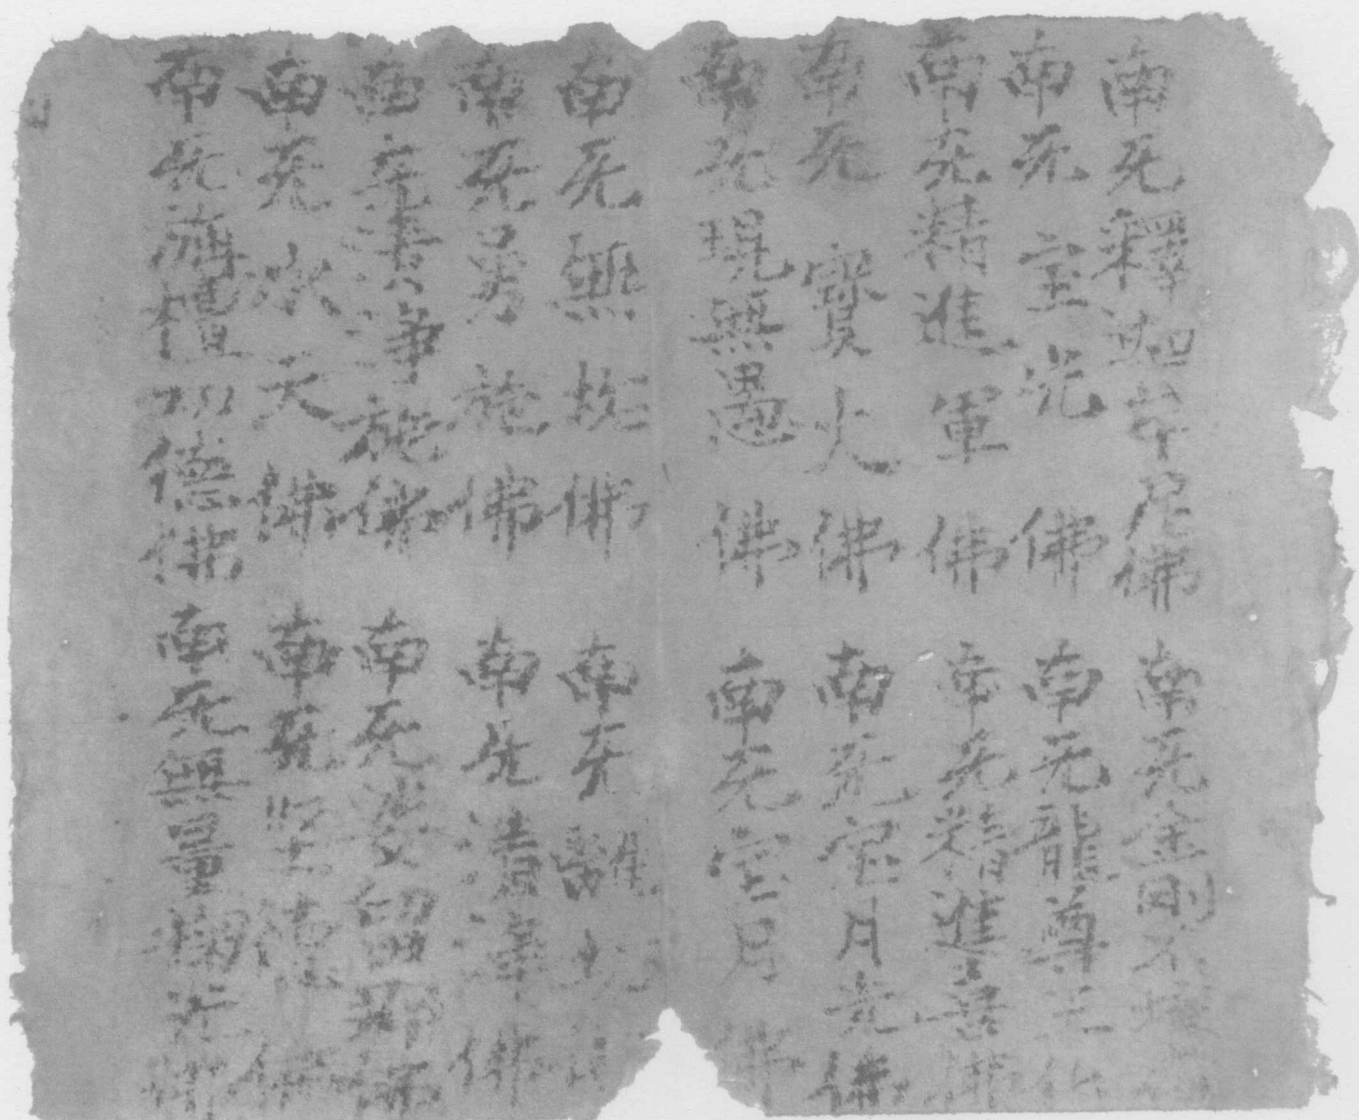 南无釋迦牟尼佛 南无金剛不壞
南无宝光佛 南无龍尊王佛
南无精進軍佛 南无精進喜佛
南无寳火佛 南无宝月光佛
南无現無愚佛 南无宝月佛
南无無垢佛 南无離垢
南无勇施佛 南无清淨佛
南无清淨施佛 南无娑留那佛
南无水天佛 南无堅德佛
南无旃檀功德佛 南无無量掬光佛